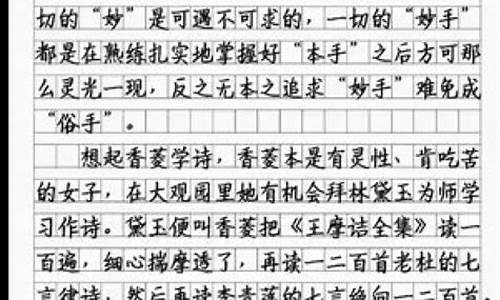 切的“妙”是可遇不可求的，一切的“妙手”
都是在熟练扎实地掌握好“本手”之后方可那
么灵光一现，反之无本之追求“妙手”难免成
“俗手”。
想起香菱学诗，香菱本是有灵性、肯吃苦
的女子，在大观园里她有机会拜林黛玉为师学
习作诗。黛玉便叫香菱把《王摩诘全集》读一
百遍，细心揣摩透了，再读一二百首老杜的七
言律诗，然后再读李青莲的七言绝句一二百首，